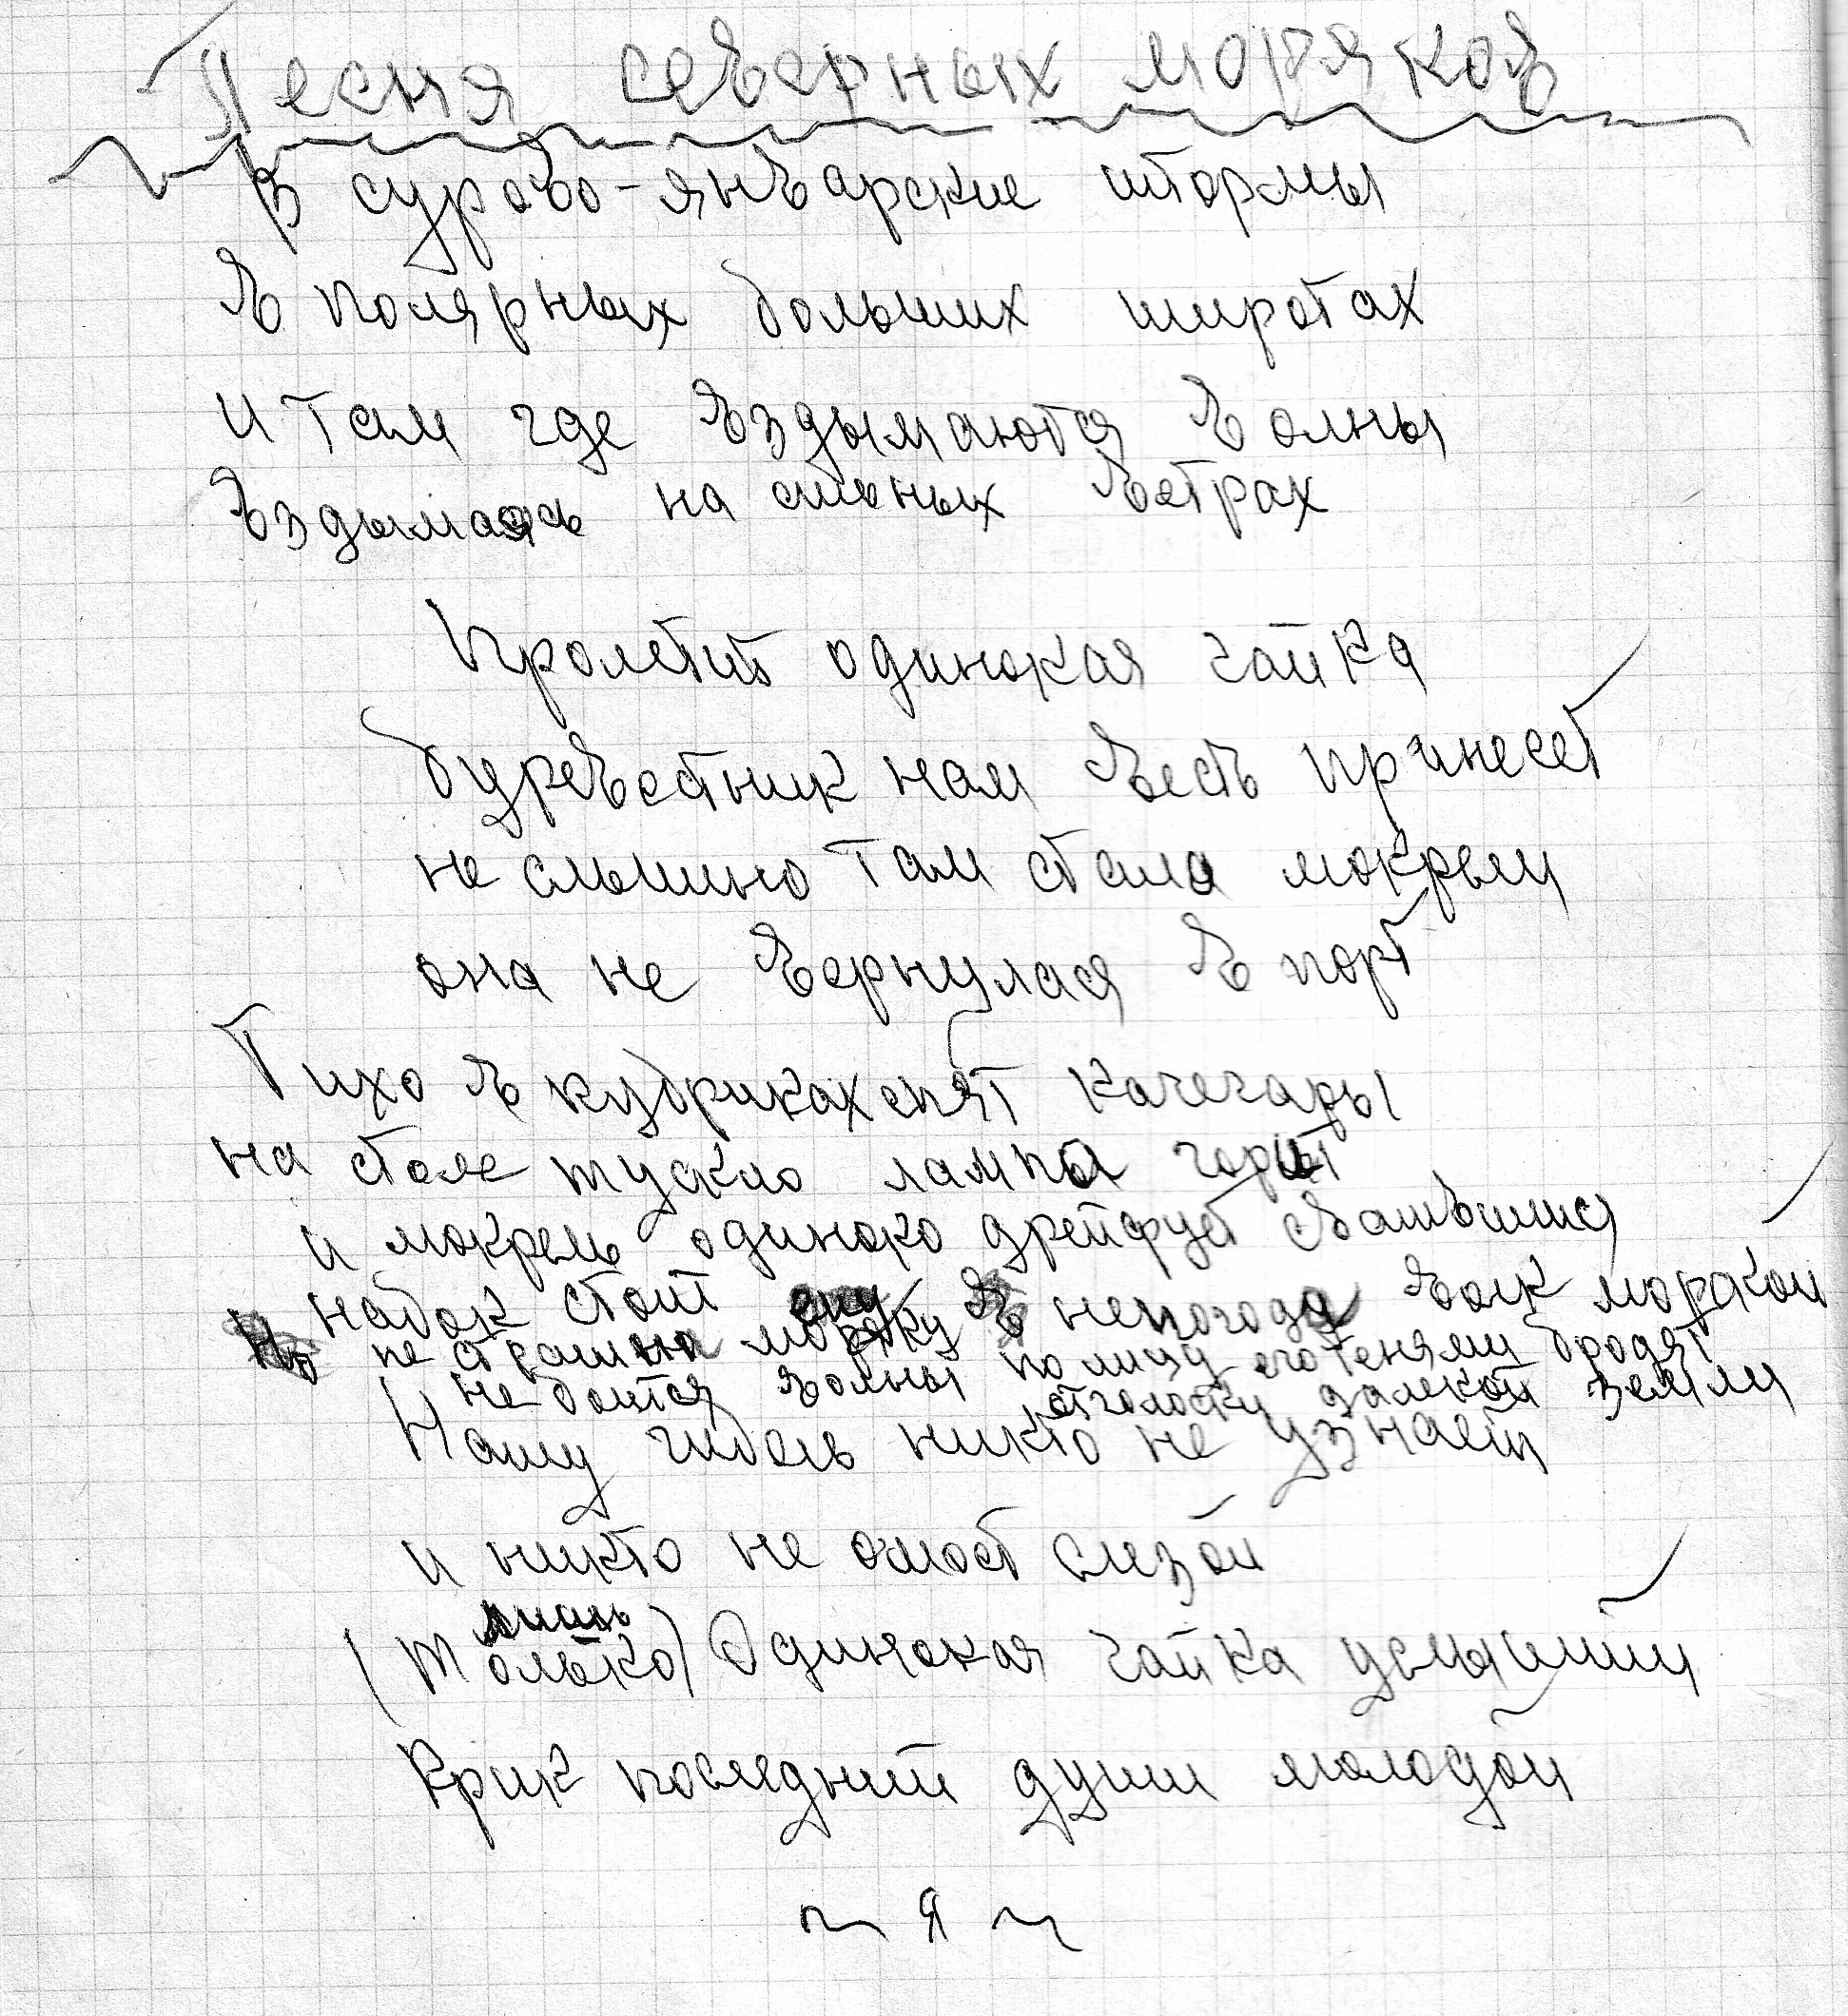 Песня северных моряков
В сурово-январские штормы
в полярных больших широтах
и там где вздымаются волны
вздымаясь на сильных ветрах
Пролетит одинокая чайка
буревестник нам весть принесет
не слышно там стала мокрец
она не вернулася в порт
Тихо в кубриках спят кочегары
на столе тускло лампа горит
и мокрель одиноко дрейфует свашвшись
набок стоит
Но не страшна моряку в непогода волк морской
не боится волны по лицу его тенями бродят
отголоски далекой земли
Нашу гибель никто не узнает
и никто не омоет слезой
лишь
(только) Одинокая чайка услышит
Крик последний души молодой
~ Я ~